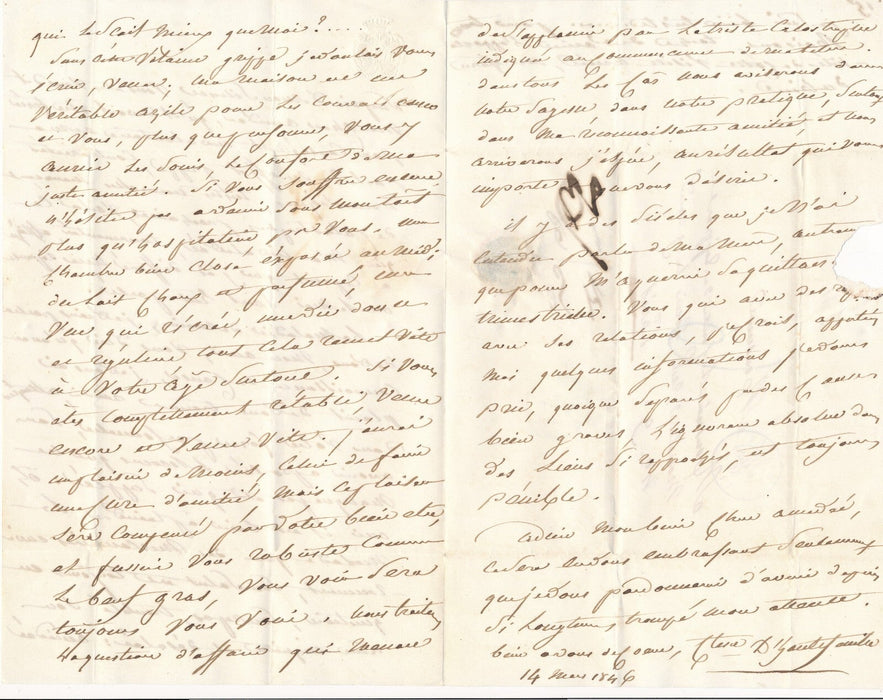 qui le sçait mieux que moi ? ....
Sans cette vilaine grippe je voulais vous
écrire, venez. Ma maison est un
véritable azile pour les convalescens
et vous, plus que personne, vous y
auriez les soins, le confort de ma
juste amitié. Si vous souffrez encore
n'hésitez pas à venir sous mon toit
plus qu'hospitalier pr vous. une
chambre bien close exposée au midi,
du lait chaud et parfumé, une
vue qui récrée, une vie douce
et régulière tout cela remet vite
à votre âge surtout. Si vous
êtes complètement rétabli venez
encore et venez vite. j'aurai
un plaisir de moins, celui de faire
une cure d'amitié, mais ce plaisir
sera compensé par votre bien être,
et fussiez vous robuste comme
le bœuf gras, vous voir sera
toujours vous voir, nous traiterons
la question d'affaire qui menace
de s'applanir par la triste catastrophe
indiquée au commencement de ma lettre.
dans tous les cas nous aviserons dans
notre sagesse dans notre pratique, surtout
dans ma reconnaissante amitié, et nous
arriverons j'espère, au résultat qui vous
importe que vous désirez.
il y a des siècles que je n'ai
entendu parler de ma mère, autrement
que pour m'acquérir sa quittance
trimestrielle. Vous qui avez des
avec ses relations, je crois,
moi quelques informations je vous
prie, quoique séparés par des causes
bien graves, l'ignorance absolue dans
des liens si rapprochés, est toujours
pénible.
adieu mon bien cher amédée,
ce sera en vous embrassant seulement
que je vous pardonnerai d'avoir depuis
si longtems trompé mon attente.
bien à vous de cœur, Ctesse D'hautefeuille
14 Mars 1846